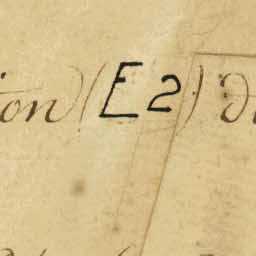 ion (E2) d